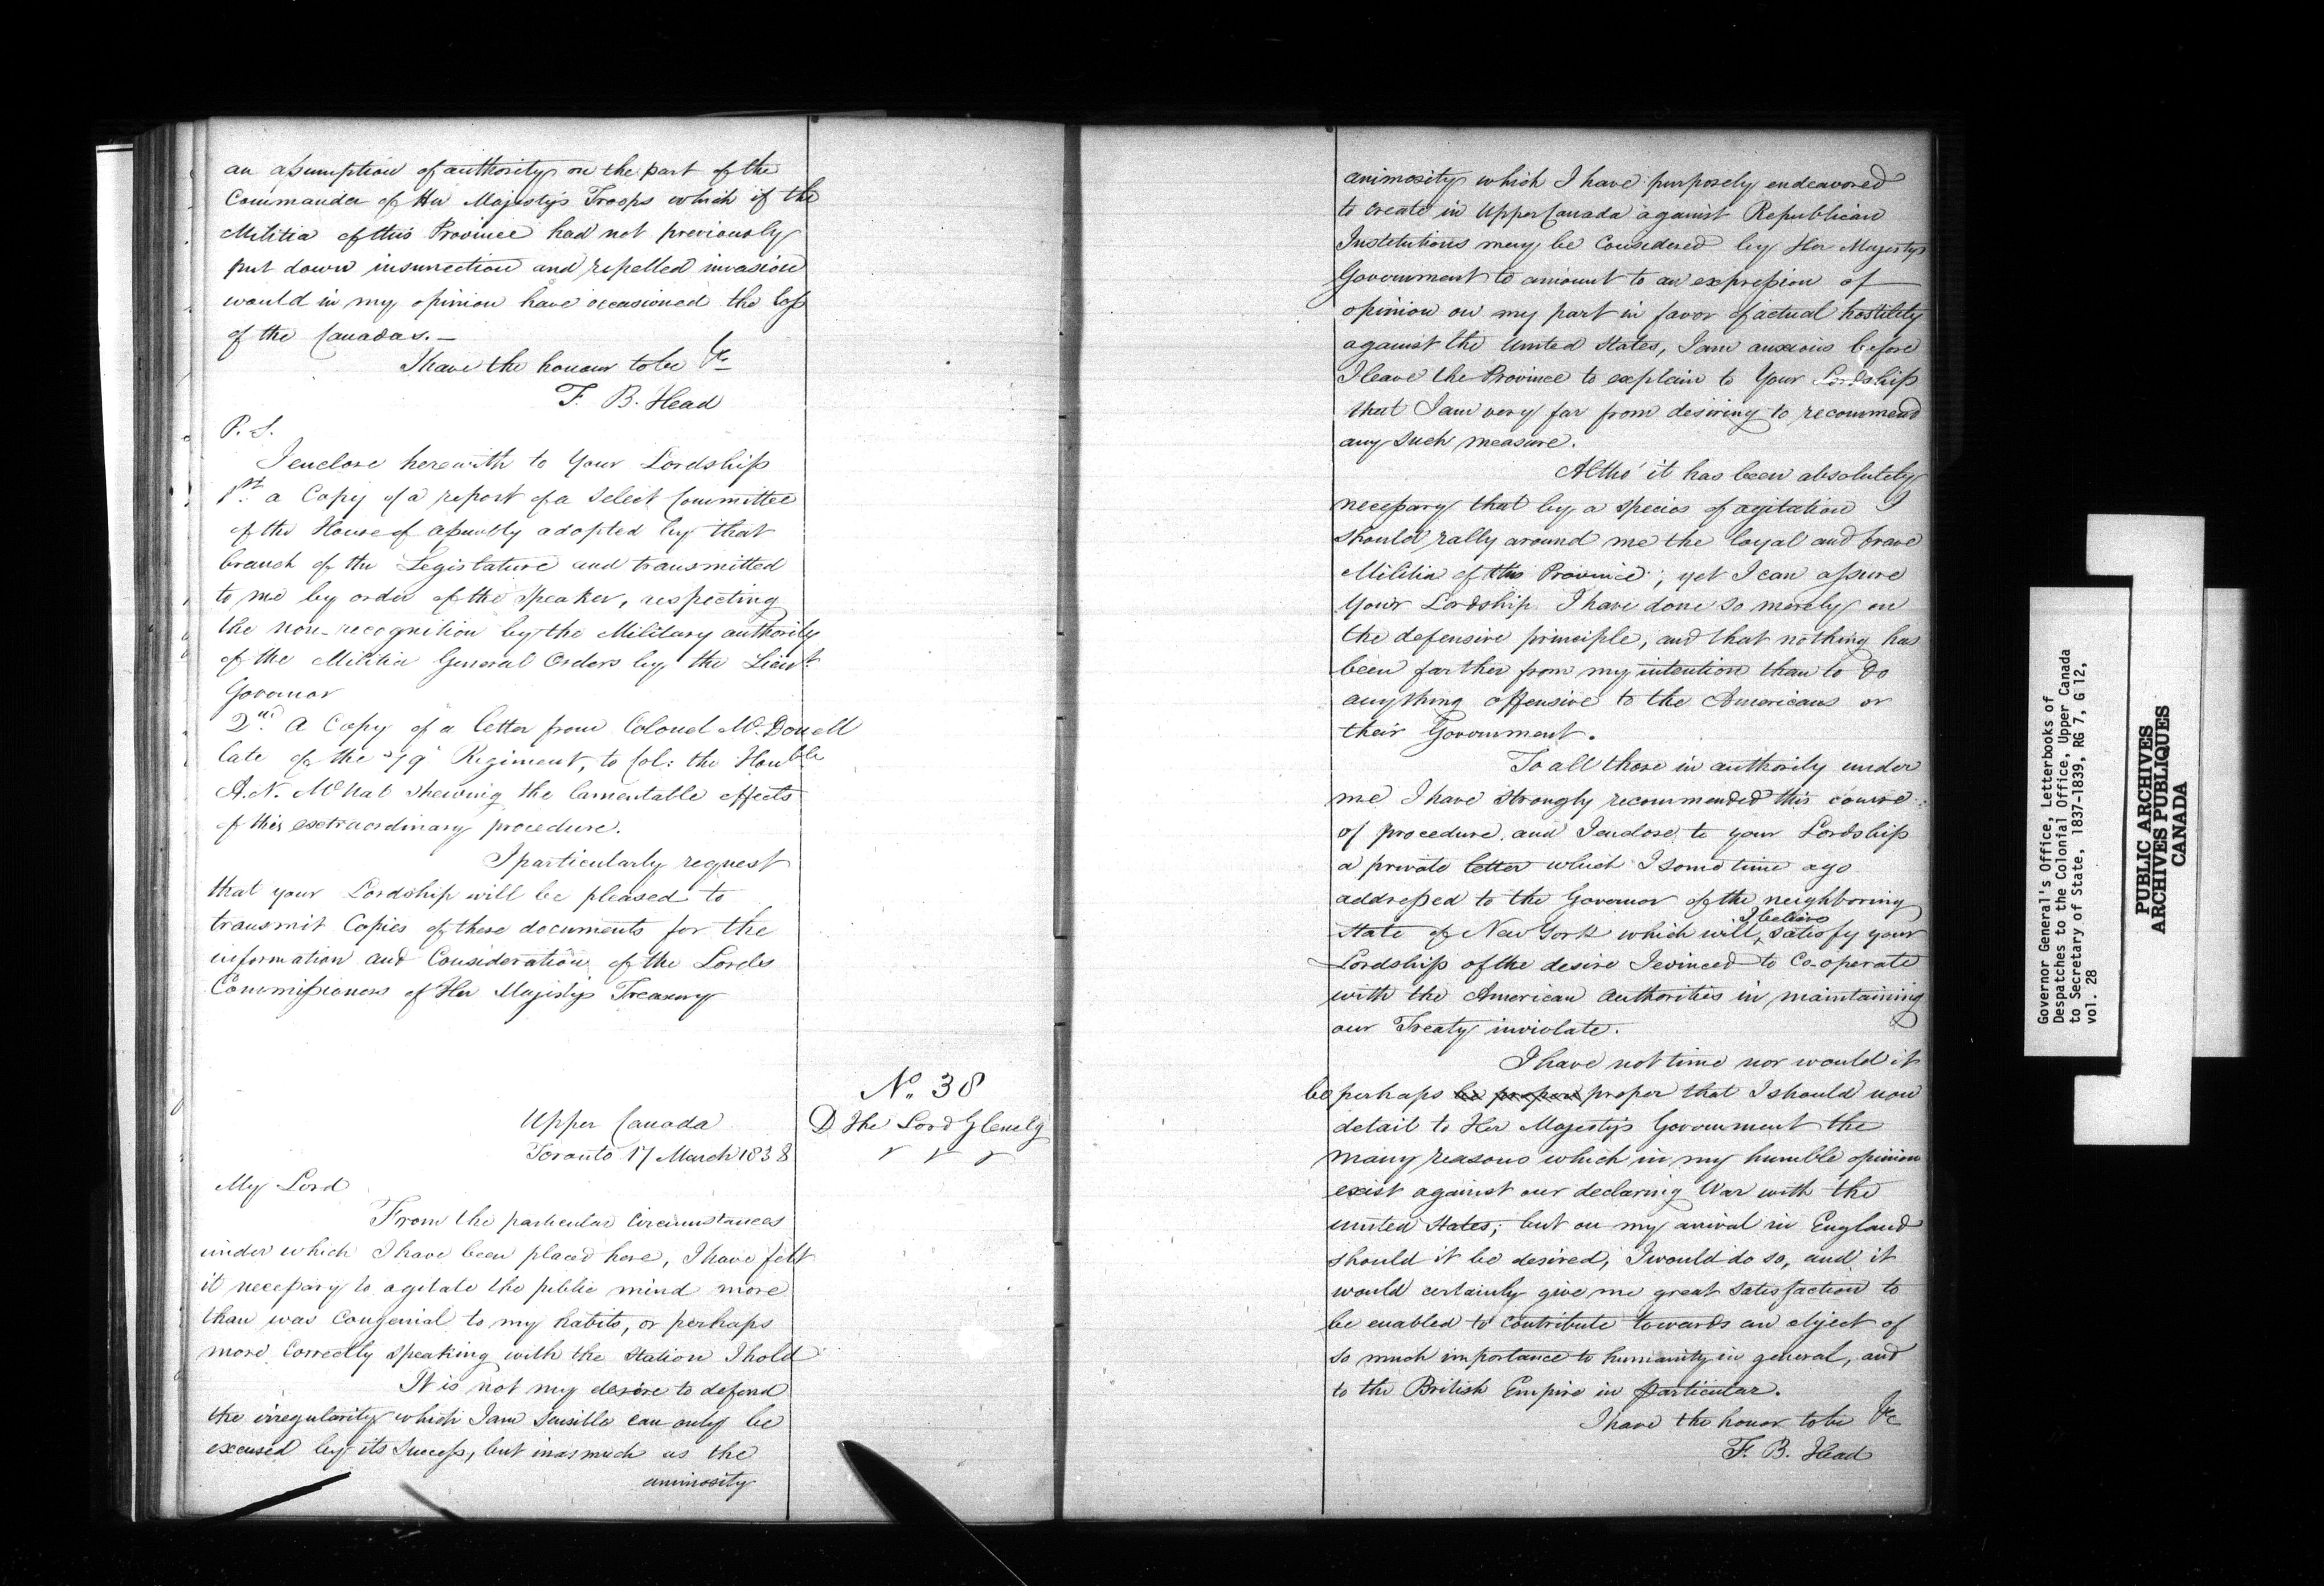 an assumption of authority on the part of the
Commander of Her Majesty's Troops which if the
Militia of this Province had not previously
put down insurrection and repelled invasion
would in my opinion have occasioned the loss
of the Canadas. —
I have the honour to be &c
F. B. Head
P. S.
I enclose herewith to Your Lordship
1st a Copy of a report of a Select Committee
of the House of Assembly adopted by that
branch of the Legislature and transmitted
to me by order of the Speaker, respecting
the non-recognition by the Military authority
of the Militia General Orders by the Lieut
Governor
2nd A Copy of a letter from Colonel McDonell
late of the 79 Regiment, to Col: the Honble
A. N. McNab shewing the lamentable effects
of this extraordinary procedure.
I particularly request
that your Lordship will be pleased to
transmit Copies of these documents for the
information and Consideration of the Lords
Commissioners of Her Majesty's Treasury
No. 38
D The Lord Glenelg
Upper Canada
Toronto 17 March 1838
My Lord
From the particular Circumstances
under which I have been placed here, I have felt
it necessary to agitate the public mind more
than was Congenial to my habits, or perhaps
more correctly speaking with the Station I hold
It is not my desire to defend
the irregularity which I am sensible can only be
excused by its success, but inasmuch as the
animosity
animosity which I have purposely endeavored
to create in Upper Canada against Republican
Institutions may be Considered by Her Majesty's
Government to amount to an expression of
opinion on my part in favor of actual hostility
against the United States, I am anxious before
I leave the Province to explain to Your Lordship
that I am very far from desiring to recommend
any such measure.
Altho' it has been absolutely
necessary that by a species of agitation I
should rally around me the loyal and brave
Militia of this Province; yet I can assure
Your Lordship I have done so merely on
the defensive principle, and that nothing has
been farther from my intention than to do
anything offensive to the Americans or
their Government.
To all those in authority under
me I have strongly recommended this course
of procedure, and I enclose to your Lordship
a private letter which I some time ago
addressed to the Governor of the neighboring
I believe
State of New York which will satisfy your
Lordship of the desire I evinced to Co-operate
with the American Authorities in maintaining
our Treaty inviolate.
I have not time nor would it
be perhaps be proper proper that I should now
detail to Her Majesty's Government the
many reasons which in my humble opinion
exist against our declaring War with the
United States; but on my arrival in England
should it be desired, I would do so, and it
would certainly give me great satisfaction to
be enabled to contribute towards an object of
so much importance to humanity in general, and
to the British Empire in particular.
I have the honor to be &c
F. B. Head
Governor General's Office, Letterbooks of
Despatches to the Colonial Office, Upper Canada
to Secretary of State, 1837-1839, RG 7, G 12,
vol. 28
PUBLIC ARCHIVES
ARCHIVES PUBLIQUES
CANADA